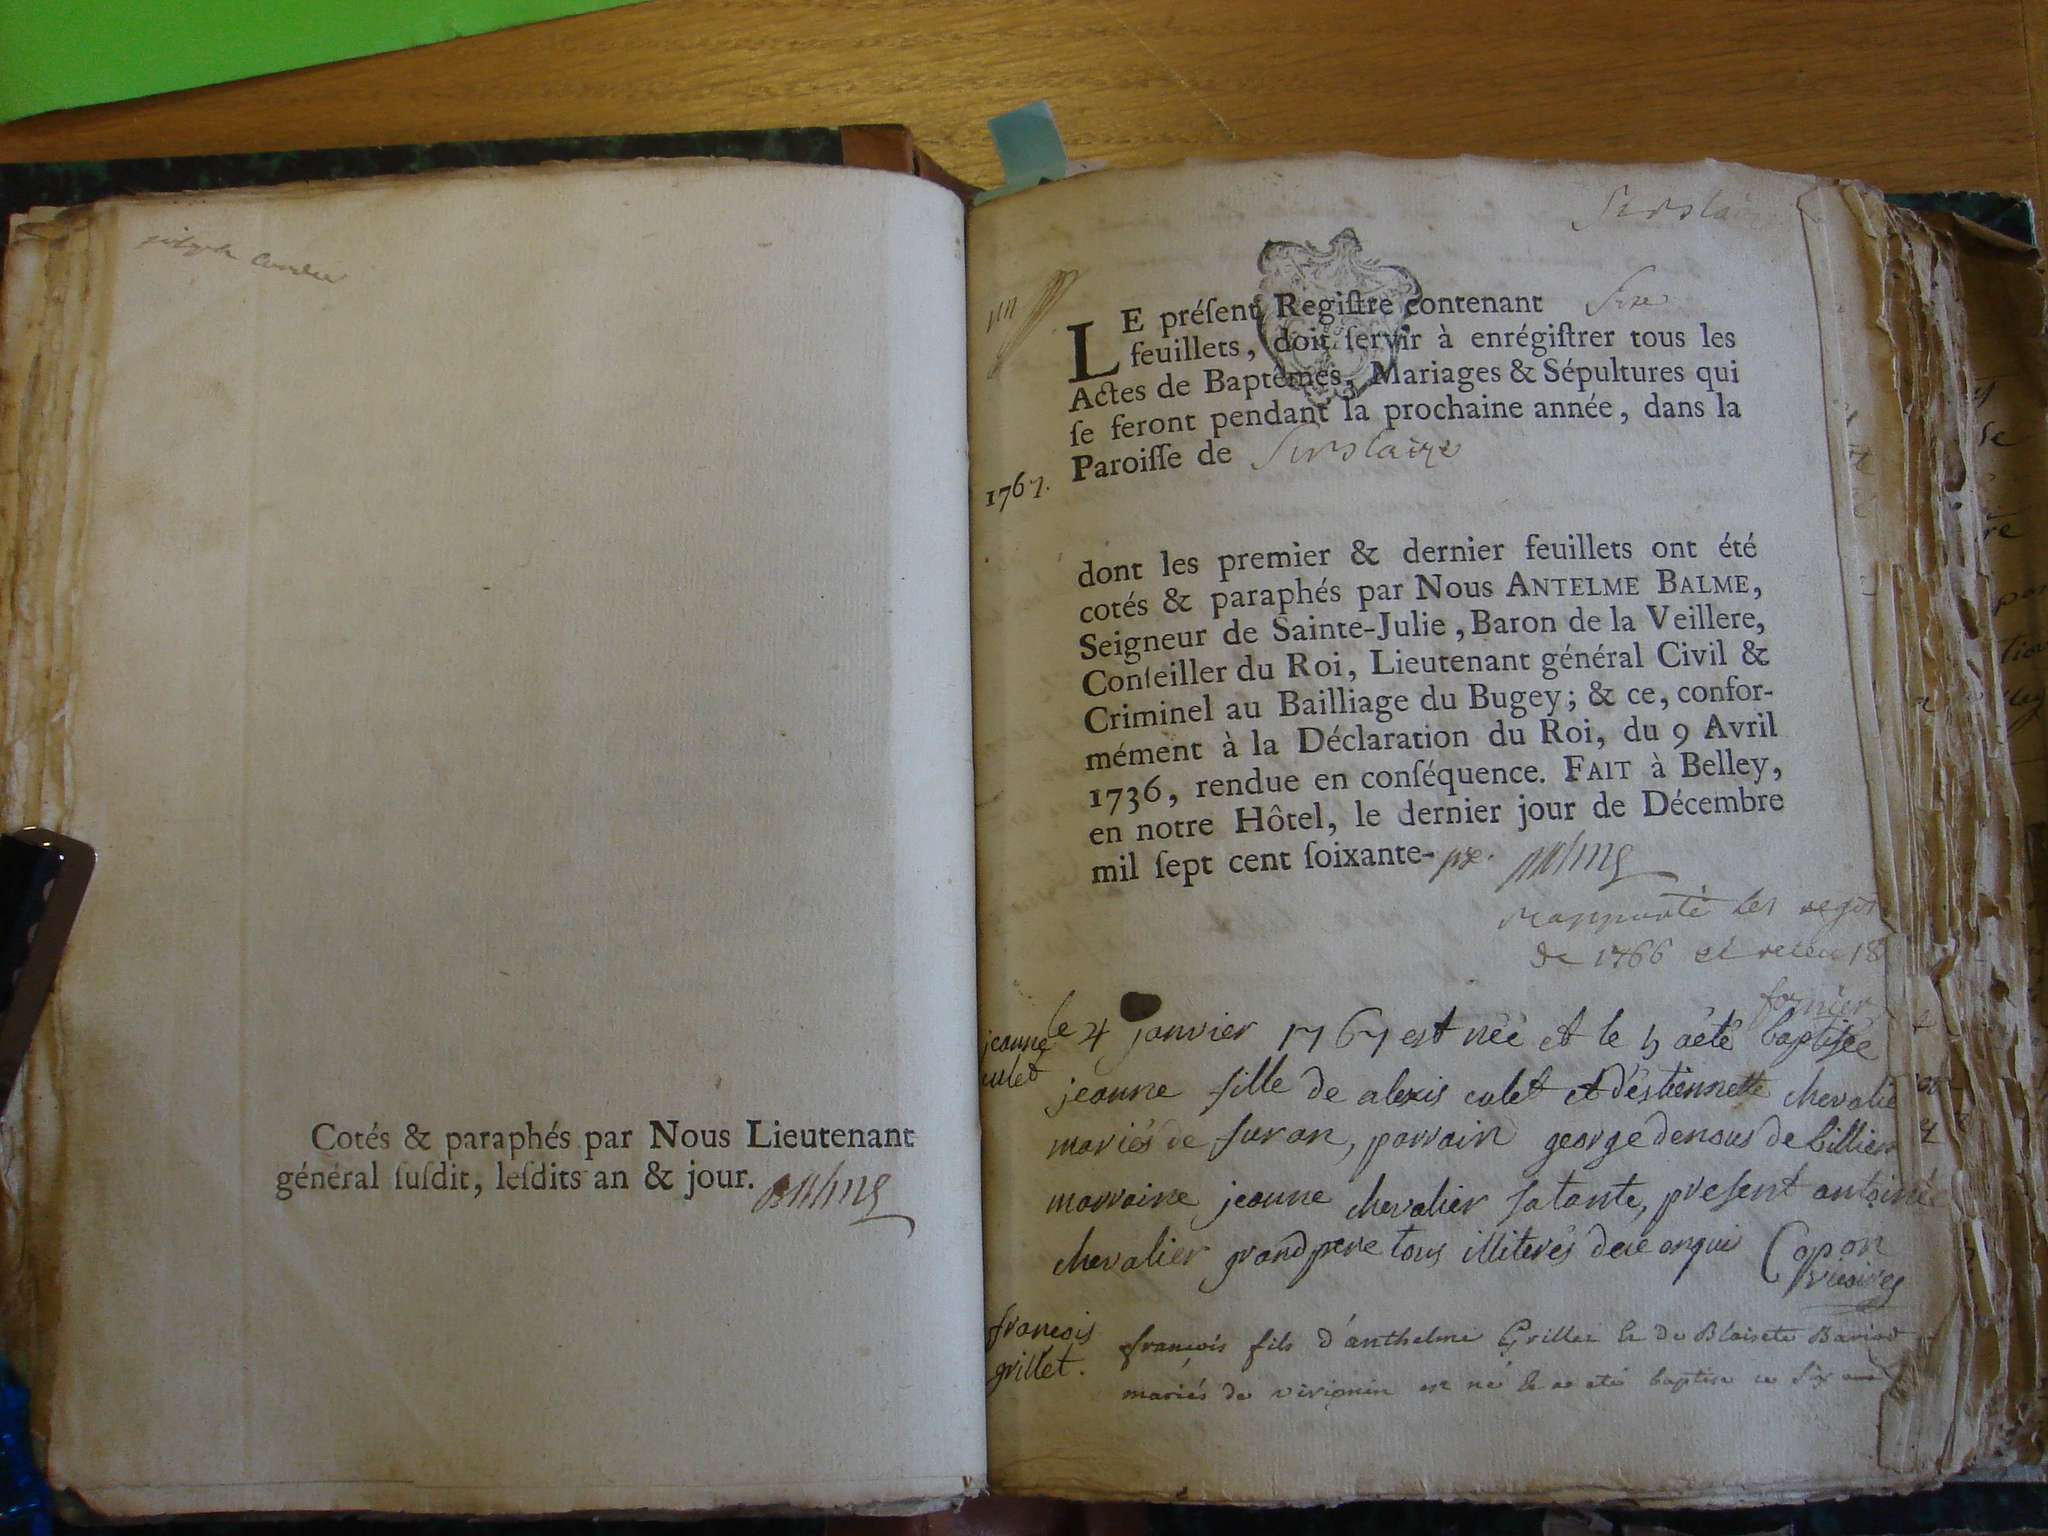 Cotés & paraphés par Nous Lieutenant
général ſuſdit, leſdits an & jour.
LE préſent Regiſtre contenant
feuillets, doit ſervir à enrégiſtrer tous les
Actes de Baptêmes, Mariages & Sépultures qui
ſe feront pendant la prochaine année, dans la
Paroiſſe de
1767.
dont les premier & dernier feuillets ont été
cotés & paraphés par Nous ANTELME BALME,
Seigneur de Sainte-Julie, Baron de la Veillere,
Conſeiller du Roi, Lieutenant général Civil &
Criminel au Bailliage du Bugey; & ce, confor-
mément à la Déclaration du Roi, du 9 Avril
1736, rendue en conſéquence. FAIT à Belley,
en notre Hôtel, le dernier jour de Décembre
mil ſept cent ſoixante-
rapporté les
de 1766 et
jeanne
culet
le 4 janvier 1767 est née et le 5 aété baptisée
jeanne fille de alexis culet et d'estiennette chevalie
mariés de suran, parrain george denous de billieu
marraine jeanne chevalier satante, present antoine
chevalier grandpere tous illiterés de ce enquis Capon
vicaire
francois
grillet.
françois fils d'anthelme Grillet & de Blaisete
mariés de virignin est né & a eté baptise ce six